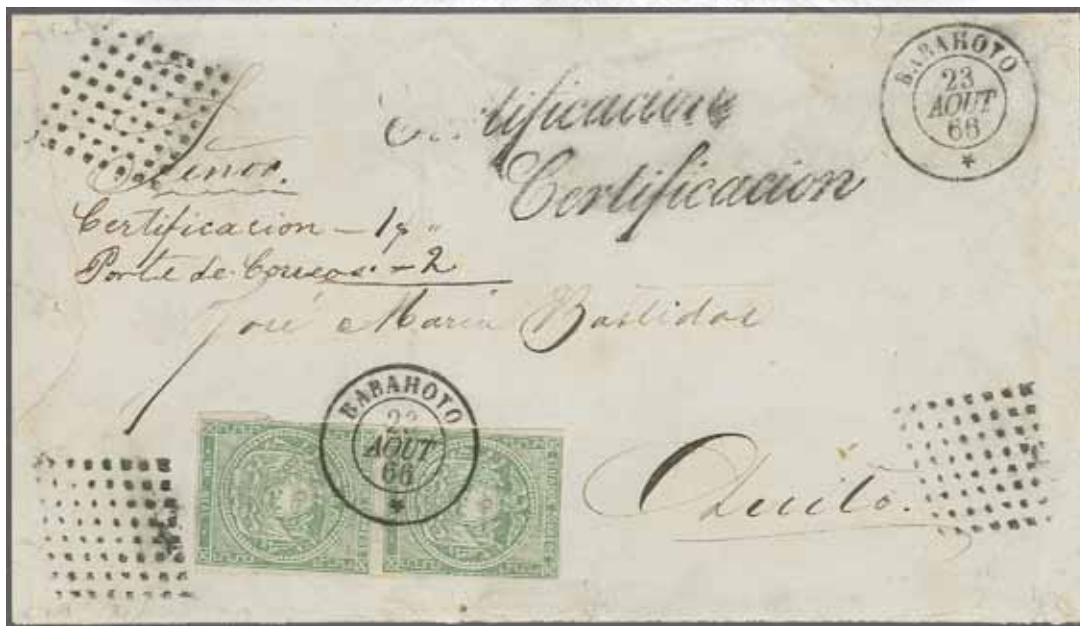 BABAHOYO
23
AOUT
66
Certificacion
Certificacion
Señor.
Certificacion - 1 „
Porte de Correos. - 2
José Maria Bastidas
BABAHOYO
23
AOUT
66
Quito.